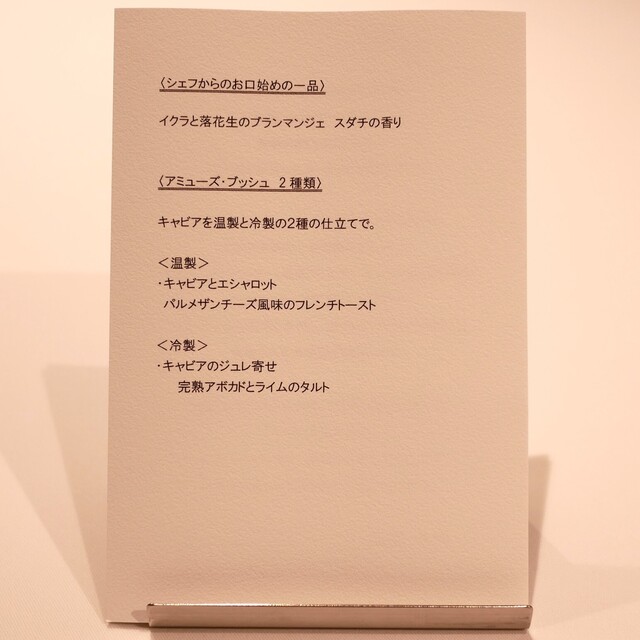 〈シェフからのお口始めの一品〉
イクラと落花生のブランマンジェ　スダチの香り
〈アミューズ・ブッシュ　２種類〉
キャビアを温製と冷製の２種の仕立てで。
＜温製＞
・キャビアとエシャロット
パルメザンチーズ風味のフレンチトースト
＜冷製＞
・キャビアのジュレ寄せ
完熟アボカドとライムのタルト